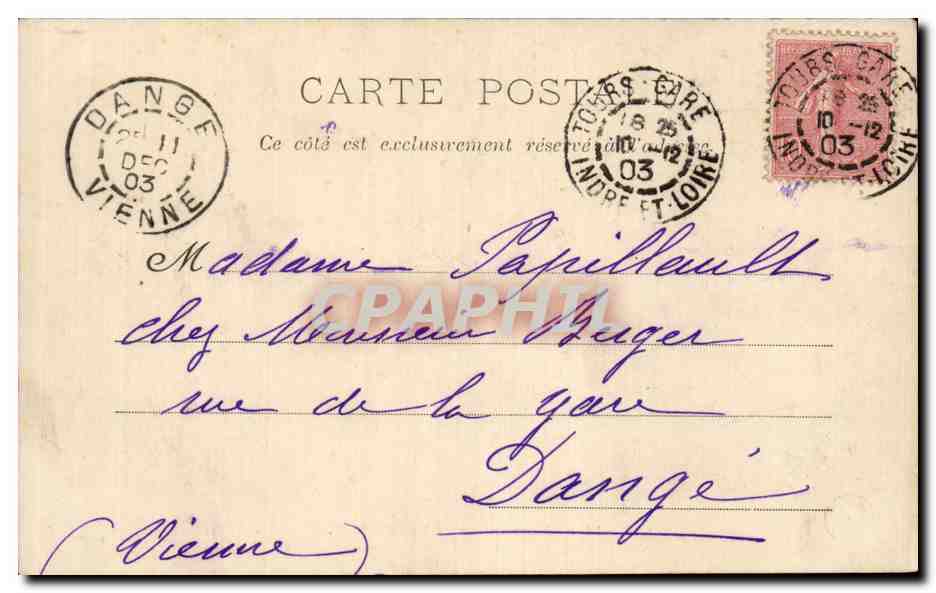 CARTE POSTALE
Ce côté est exclusivement réservé à l'adresse
DANGE
11
DEC
03
VIENNE
TOURS-GARE
18 25
10 -12
03
INDRE-ET-LOIRE
TOURS-GARE
18 25
10 -12
03
INDRE-ET-LOIRE
Madame Papillault
chez Monsieur Berger
rue de la gare
Dangé
(Vienne)
CPAPHIL